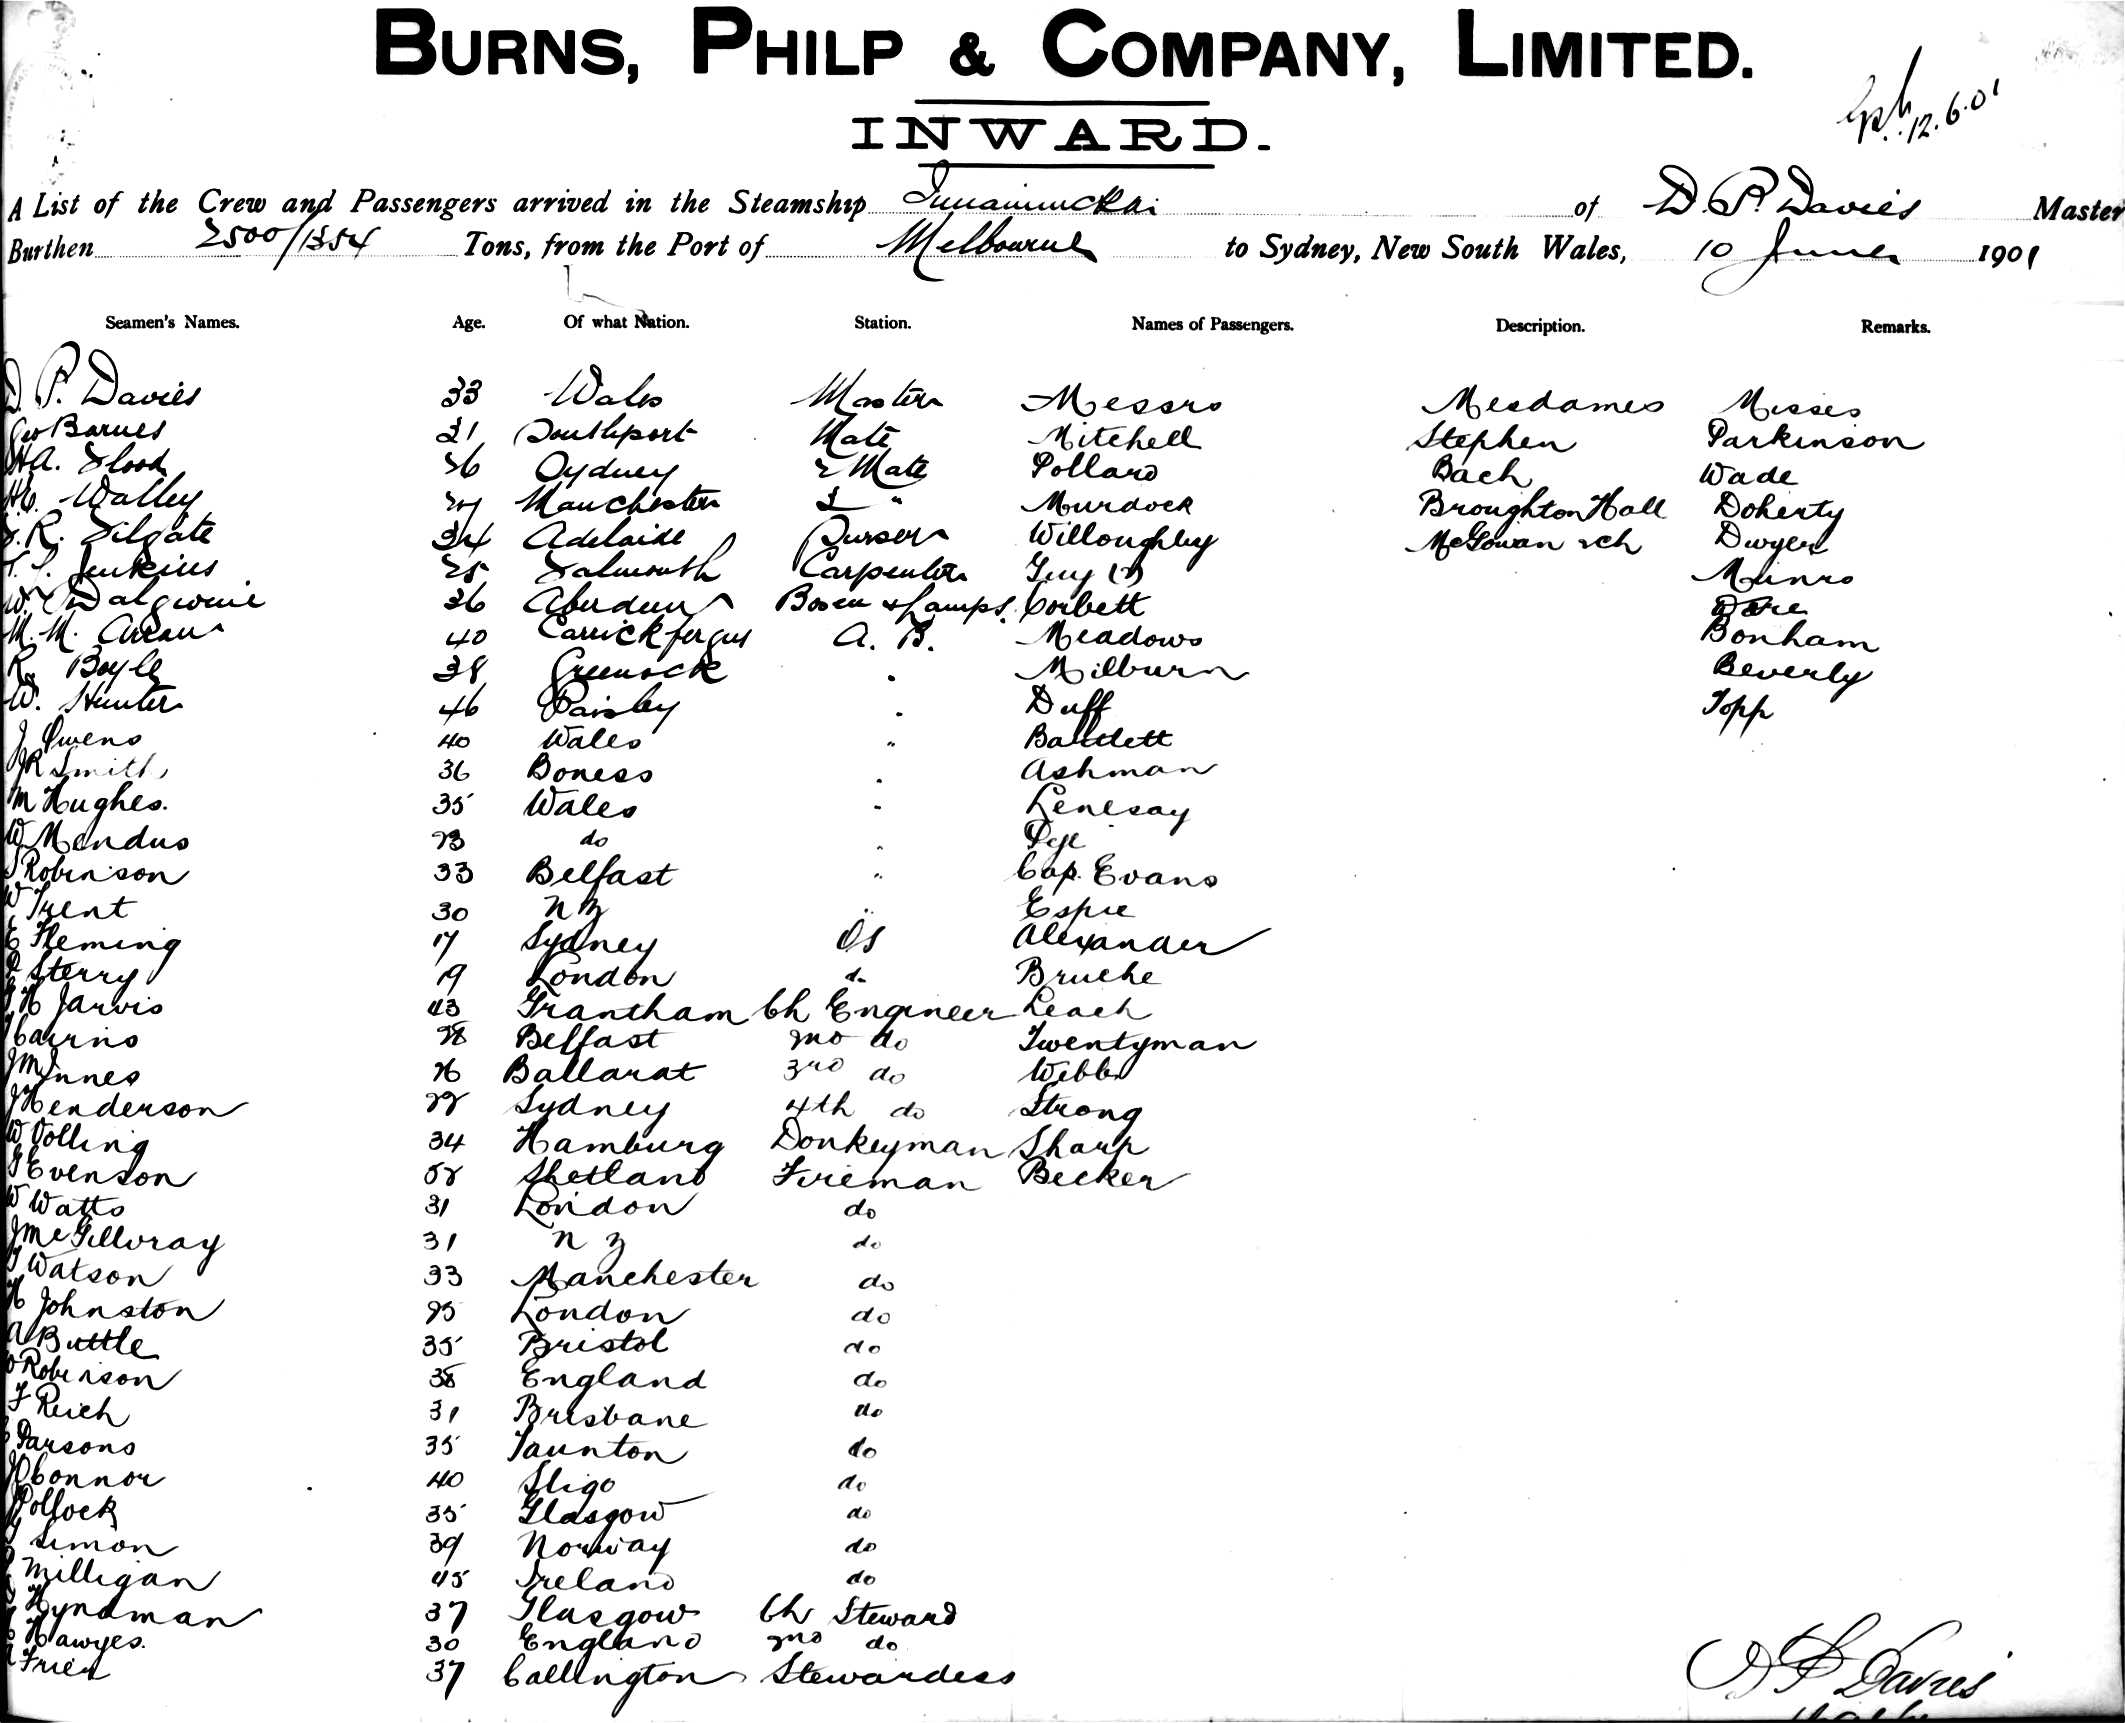 BURNS, PHILP & COMPANY, LIMITED.
INWARD.
12.6.01
A List of the Crew and Passengers arrived in the Steamship of D. P. Davies Master
Burthen 2500/1354 Tons, from the Port of Melbourne to Sydney, New South Wales, 10 June 1901
Seamen's Names. Age. Of what Nation. Station. Names of Passengers. Description. Remarks.
D. P. Davies 33 Wales Master Messrs Mesdames Misses
Geo Barnes 31 Southport Mate Mitchell Stephen Parkinson
H.A. Flood 26 Sydney 2 Mate Pollard Bach Wade
Walley Manchester 3 " Murdock Broughton Hall Doherty
R. Filgate 34 Adelaide Purser Willoughby McGowan & ch Dwyer
Jenkins 25 Falmouth Carpenter Guy (2) Munro
W. Dalgwinie 36 Aberdeen Bosen & Lamps. Corbett Dore
M. M. 40 Carrickfergus A. B. Meadows Bonham
R. Boyle 38 Greenock " Milburn Beverly
W. Hunter 46 Paisley " Duff Topp
J Owens 40 Wales " Bartlett
JR Smith 36 Boness " Ashman
M Hughes. 35 Wales " Lenesay
W Mendus 23 do " Pye
Robinson 33 Belfast " Cap. Evans
W Trent 30 NZ " Espie
E Fleming 17 Sydney OS Alexander
Sterry 19 London do Bruche
H Jarvis 43 Grantham Ch Engineer Leach
Cairns 28 Belfast 2nd do Twentyman
J McInnes 26 Ballarat 3rd do Webb
J Henderson 22 Sydney 4th do Strong
W Volling 34 Hamburg Donkeyman Sharp
Evenson 52 Shetland Fireman Becker
W Watts 31 London do
J McGillvray 31 NZ do
Watson 33 Manchester do
H Johnston 25 London do
A Buttle 35 Bristol do
Robinson 38 England do
F Reich 31 Brisbane do
Parsons 35 Taunton do
J OConnor 40 Sligo do
Pollock 35 Glasgow do
Simon 39 Norway do
Milligan 45 Ireland do
Hyndman 37 Glasgow Ch Steward
Hawyes. 30 England 2nd do
Frier 37 Callington Stewardess
D P Davies